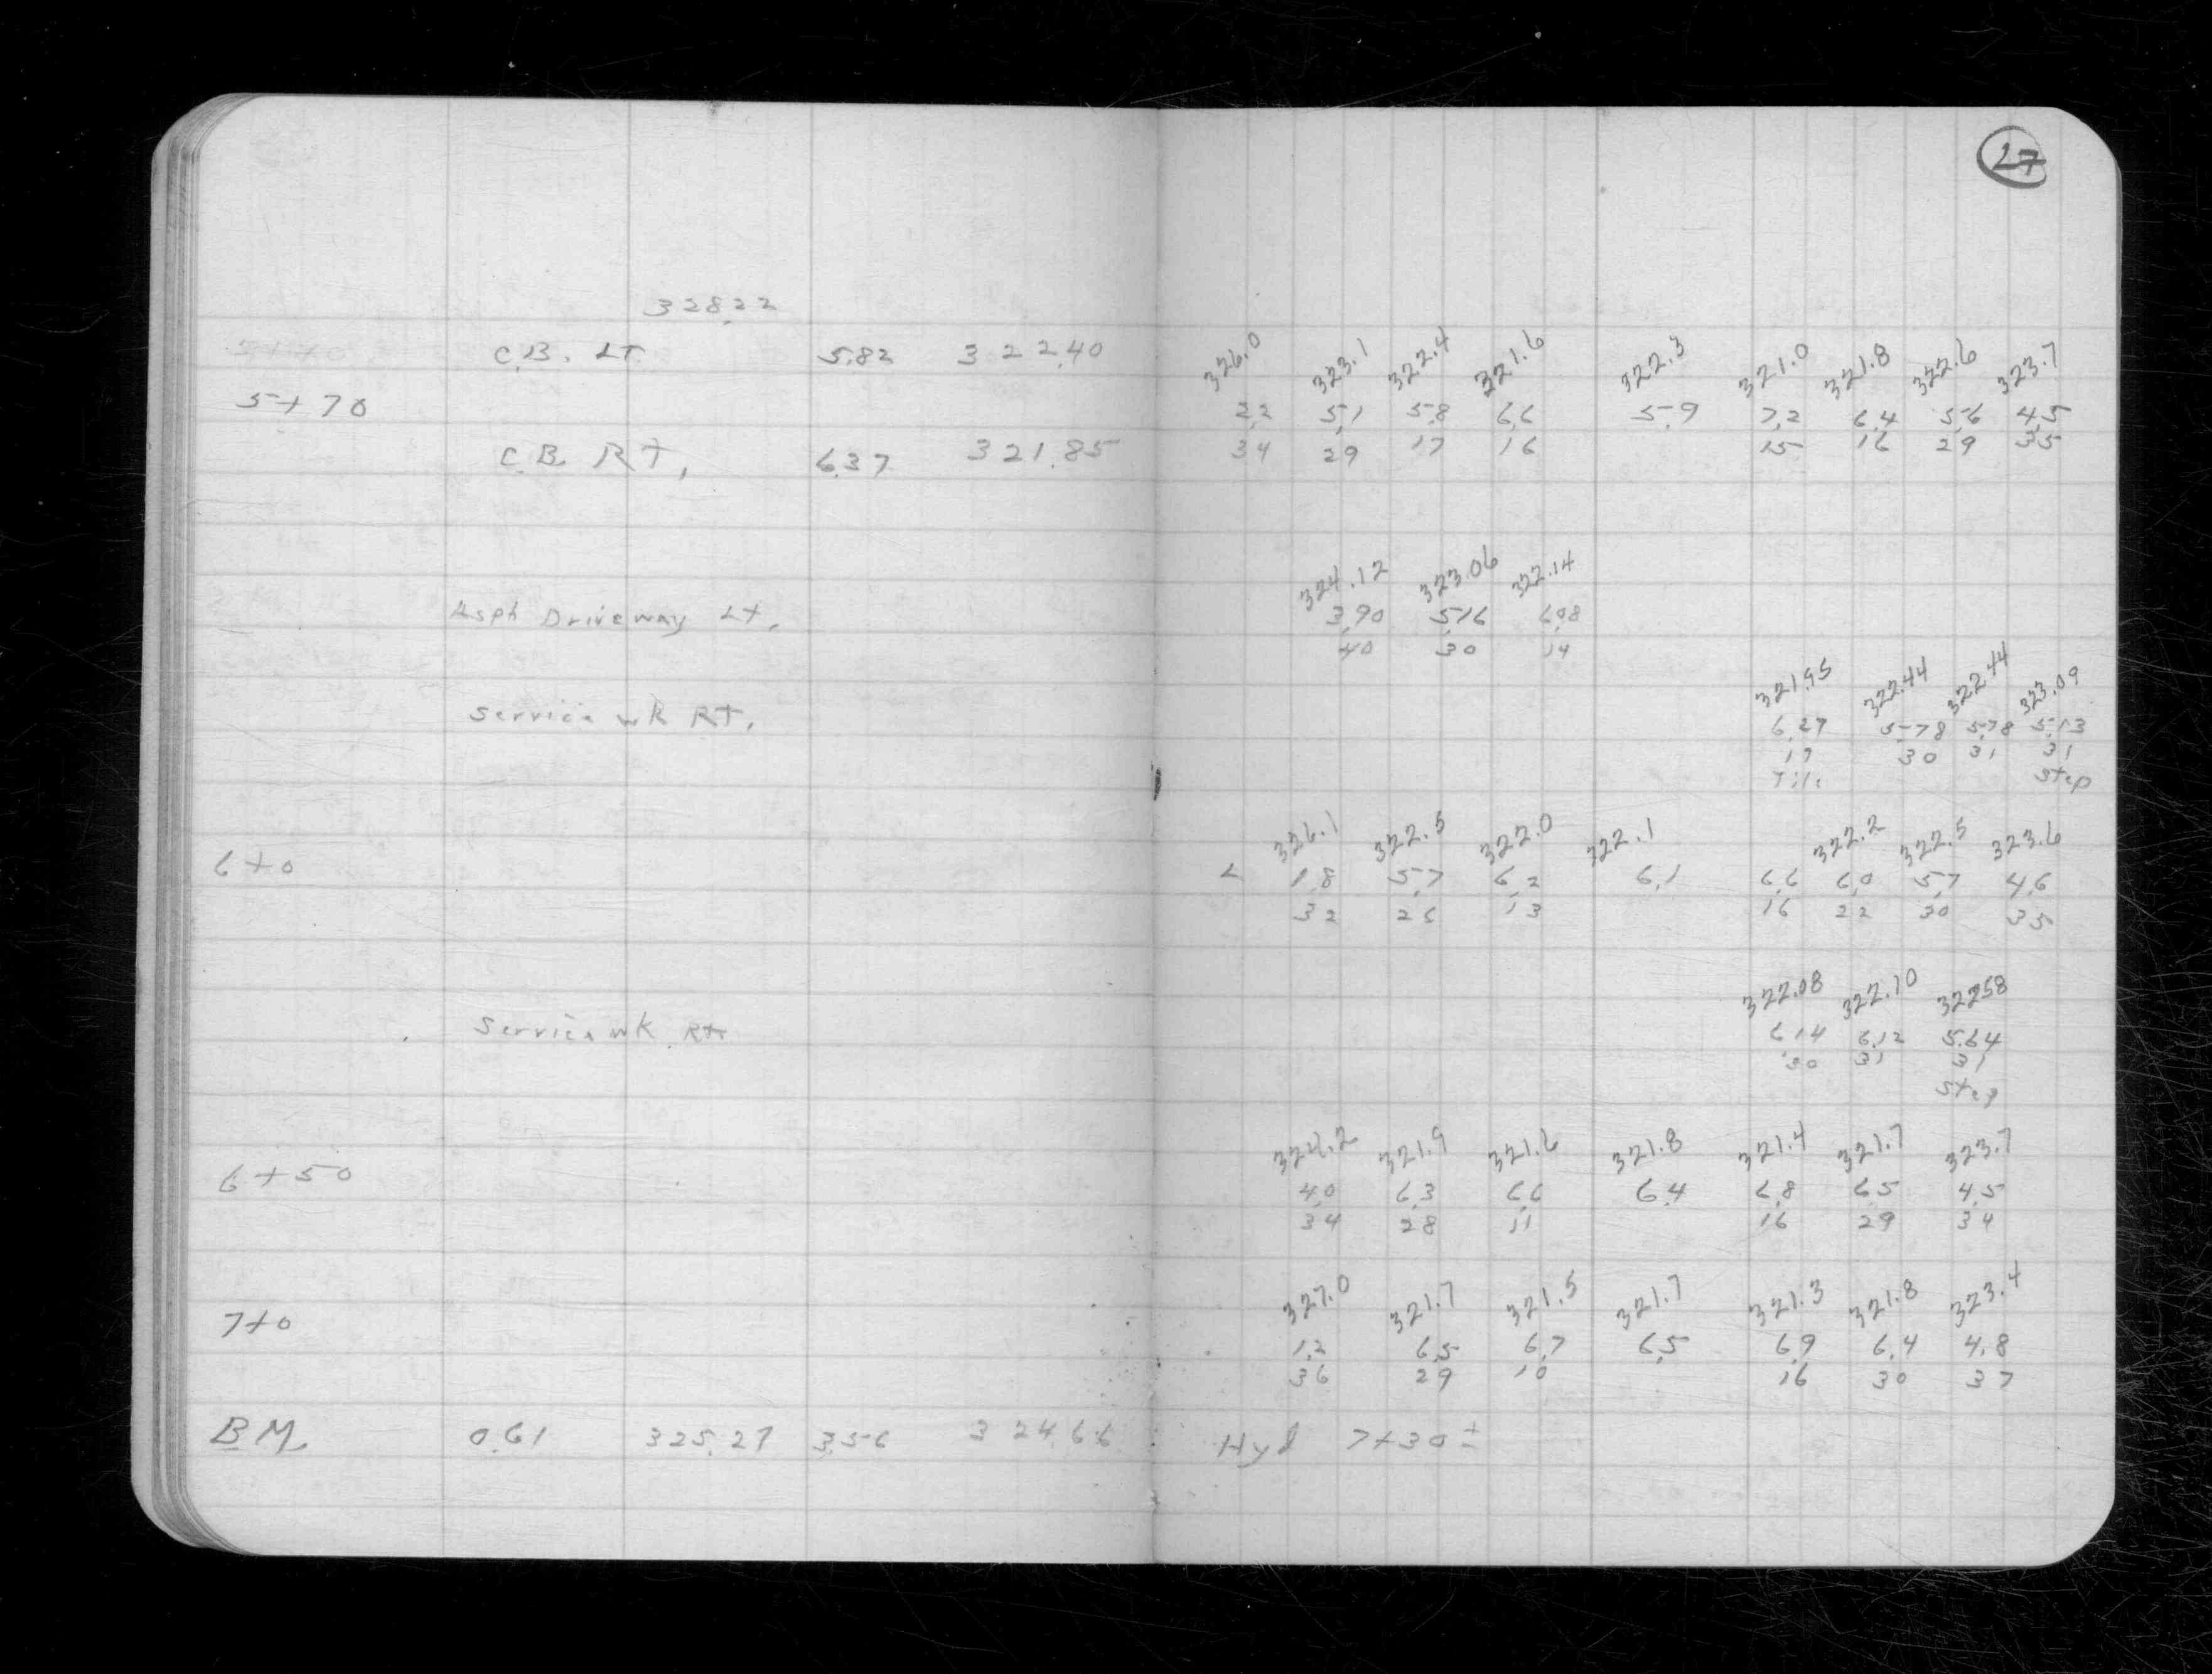 27
328.22
C.B. LT. 5.82 322.40
5+70
C.B. RT. 6.37 321.85
326.0 323.1 322.4 321.6 322.3 321.0 321.8 322.6 323.7
2.2 5.1 5.8 6.6 5.9 7.2 6.4 5.6 4.5
34 29 17 16 15 16 29 35
324.12 323.06 322.14
Asph Driveway Lt. 3.90 5.16 6.08
40 30 14
321.95 322.44 322.44 323.09
Service wk RT. 6.27 5.78 5.78 5.13
17 30 31 31
Step
326.1 322.5 322.0 322.1 322.2 322.5 323.6
6+0 1.8 5.7 6.2 6.1 6.6 6.0 5.7 4.6
32 26 13 16 22 30 35
322.08 322.10 322.58
Service wk Rt 6.14 6.12 5.64
30 31 31
Step
324.2 321.9 321.6 321.8 321.4 321.7 323.7
6+50 4.0 6.3 6.6 6.4 6.8 6.5 4.5
34 28 11 16 29 34
327.0 321.7 321.5 321.7 321.3 321.8 323.4
7+0 1.2 6.5 6.7 6.5 6.9 6.4 4.8
36 29 10 16 30 37
BM 0.61 325.27 3.56 324.66 Hyd 7+30±